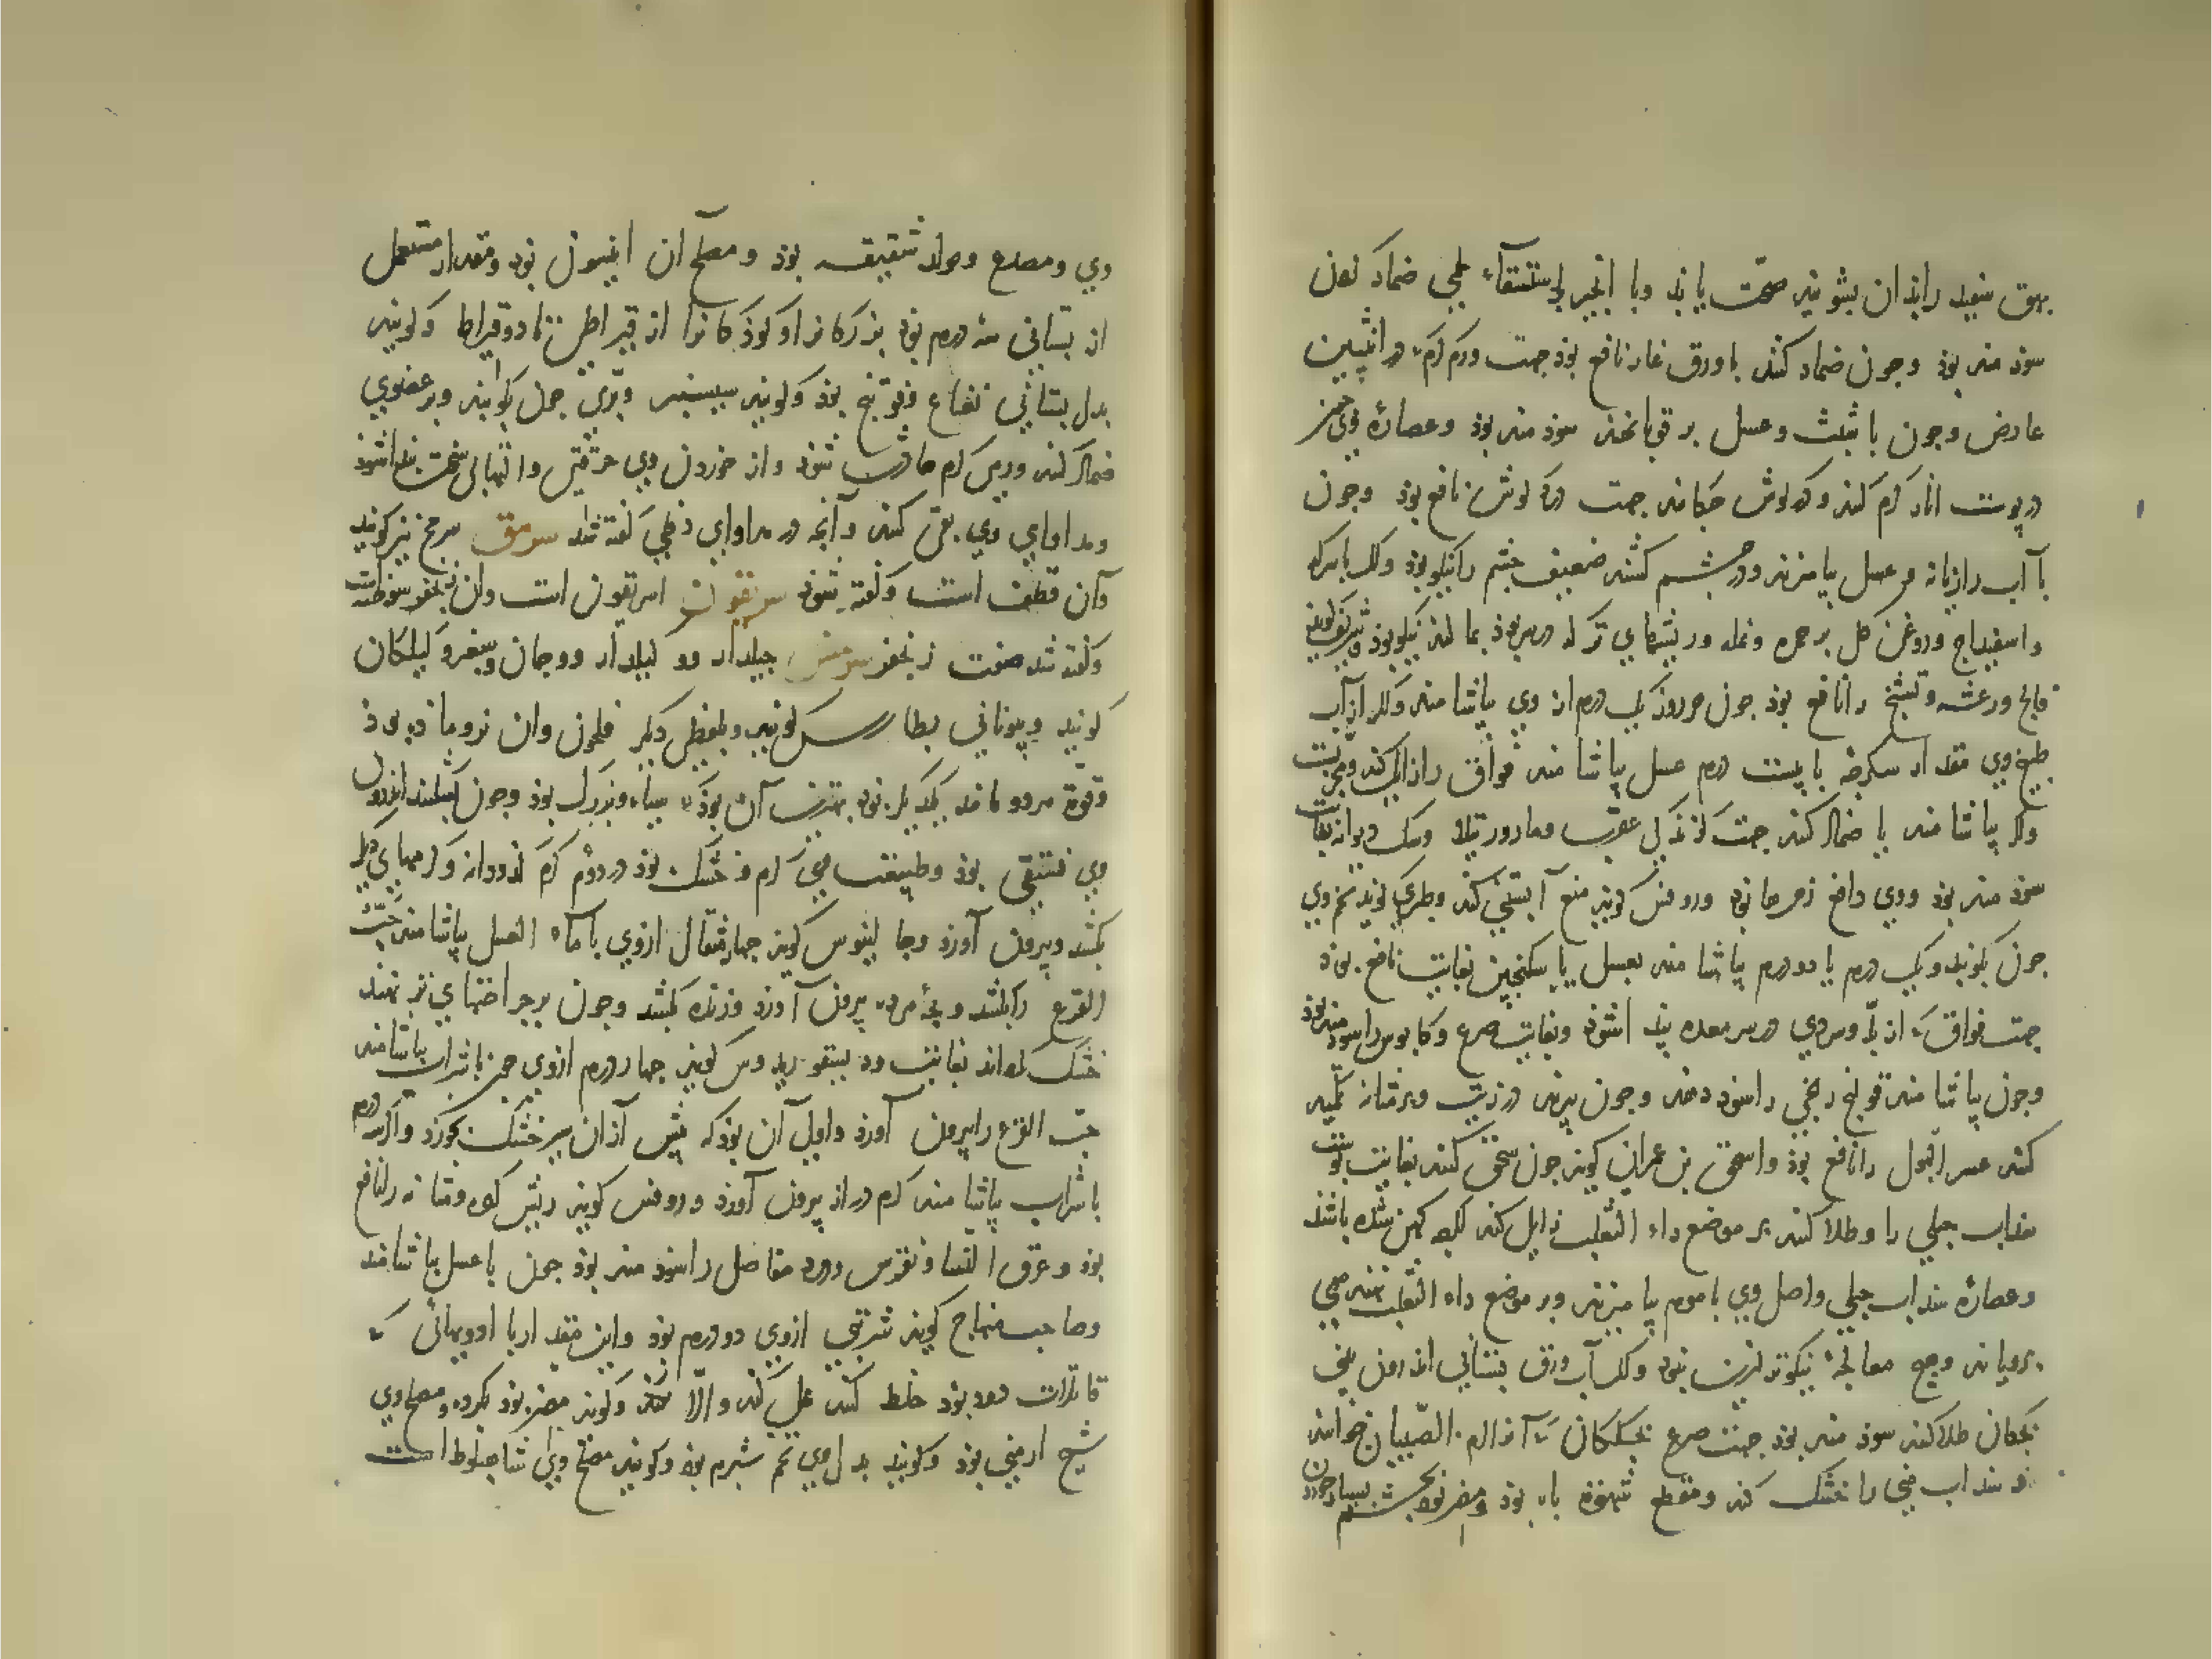 بهق سفید را بذان بشویند صحّت یابد و با انجیر بر استسقاء لحمی ضماد کردن
سوذ مند بوذ و جون ضماد کنند با ورق غار نافع بوذ جهت ورم کرم در انثیین
عارض و جون با شبّت و عسل بر قوبا نهند سوذ مند بوذ و عصارهٔ وی جون
در پوست انار کرم کنند و در کوش جکانند جهت درد کوش نافع بوذ و جون
با آب رازیانه و عسل بیامیزند و در جشم کشند ضعیف جشم را نیکو بوذ و کر با سرکه
و اسفیداج و روغن کل بر حمره و نمله و ریشهای تر که در سر بوذ بمالند نیکو بوذ و شریف کوید
فالج و رعشه و تشنج را نافع بوذ جون هر روز یک درم از وی بیاشامند و کر از آب
طبیخ وی مقدار سکرجه با بیست درم عسل بیاشامند فواق را زایل کند و مجربست
و کر بیاشامند یا ضماد کنند جهت کزندکی عقرب و مار و رتیلا و سک دیوانه بغایت
سوذ مند بوذ و وی دافع زهرها بوذ و روفس کوید منع آبستنی کند و طبری کوید تخم وی
جون بکوبند و یک درم یا دو درم بیاشامند بعسل یا سکنجبین بغایت نافع بوذ
جهت فواق که از بلغم در سر معده پیدا شوذ و بغایت صرع و کابوس را سوذ مند بوذ
و جون بیاشامند قولنج ریحی را سوذ دهد و جون بپزند در زیت و بر مثانه تکمید
کنند عسر البول را نافع بوذ و اسحق بن عمران کوید جون سحق کنند بغایت پوست
سداب جبلی را و طلا کنند بر موضع داء الثعلب زایل کند اکرجه کهن شده باشد
و عصارهٔ سداب جبلی و اصل وی با موم بیامیزند و بر موضع داء الثعلب نهند موی
برویاند و هیج معالجهٔ نیکوتر ازین نبوذ و کر آب ورق بستانی اندرون بینی
بجکان طلا کنند سوذ مند بوذ جهت صرع بجکان که آنرا ام الصبیان خوانند
و سداب منی را خشک کند و مقطع شهوة باه بوذ و مضر بوذ بجشم بسیار خوردن
وی و مصدع و مولد شقیقه بوذ و مصلح آن انیسون بوذ و مقدار مستعمل
از بستانی سه درم بوذ بزرکانرا و کوذکانرا از قیراطی تا دو قیراط و کویند
بدل بستانی نعناع و فوتنج بوذ و کویند سیسنبر و بری جون بکوبند و بر عضوی
ضماد کنند ورمی کرم حادث شوذ و از خوردن وی حرقتی و التهابی سخت پیدا شوذ
و مداوای وی بقی کنند و آنجه در مداوای دفلی کفته شد سرمق سرمج نیز کویند
و آن قطف است و کفته شوذ سریقون اسریقون است و آن زنجفر سوخته است
و کفته شد صفت زنجفر سرخس جیلدار و کیلدار و وجان و سغر و کیلکان
کویند و بیونانی بطارس کویند و بلفظی دیکر فلمون و آن نر و ماده بوذ
و قوة هر دو مانند یکدیکر بوذ بهترین آن بوذ که سیاه و بزرک بوذ و جون بشکنند اندرون
وی فستقی بوذ و طبیعت وی کرم و خشک بوذ در دوم کرم کدودانه و کرمهای دیکر
بکشد و بیرون آورد و جالینوس کوید جهار مثقال از وی با ماء العسل بیاشامند حبّ
القرع را بکشد و بجهٔ مرده بیرون آورد و زنده بکشد و جون بر جراحتهای تر نهند
خشک کرداند بغایت و دیسقوریدوس کوید جهار درم از وی جون با شراب بیاشامند
حبّ القرع را بیرون آورد و اولی آن بوذ که پیش از آن سیر خشک بخورد و اکر سه درم
با شراب بیاشامند کرم دراز بیرون آورد و روفس کوید ریش کرده و مثانه را نافع
بوذ و عرق النسا و نقرس و درد مفاصل را سوذ مند بوذ جون با عسل بیاشامند
و صاحب منهاج کوید شربتی از وی دو درم بوذ و این مقدار با ادویهائی که
قاتلات دود بوذ خلط کنند عمل کند و الّا نکند و کویند مضر بوذ بکرده و مصلح وی
شیح ارمنی بوذ و کویند بدل وی تخم شبرم بوذ و کویند مصلح وی شاهبلوط است